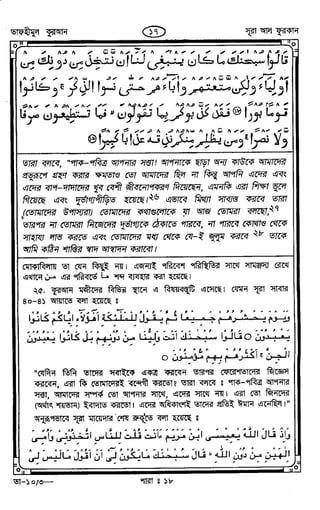 তাফহীমুল কুরআন ১৭ সূরা আল ফুরকান
قَالُوا سُبْحٰنَكَ مَا كَانَ يَنْبَغِي لَنَا أَنْ نَتَّخِذَ مِنْ دُونِكَ مِنْ
أَوْلِيَاءَ وَلٰكِنْ مَتَّعْتَهُمْ وَآبَاءَهُمْ حَتّٰى نَسُوا الذِّكْرَ ۚ وَكَانُوا
قَوْمًا بُورًا ۝ فَقَدْ كَذَّبُوكُمْ بِمَا تَقُولُونَ ۙ فَمَا تَسْتَطِيعُونَ صَرْفًا
وَلَا نَصْرًا ۚ وَمَنْ يَظْلِمْ مِنْكُمْ نُذِقْهُ عَذَابًا كَبِيرًا ۝
তারা বলবে, "পাক-পবিত্র আপনার সত্তা! আপনাকে ছাড়া অন্য কাউকে আমাদের
প্রভুরূপে গ্রহণ করার ক্ষমতাও তো আমাদের ছিল না কিন্তু আপনি এদের এবং
এদের বাপ-দাদাদের খুব বেশী জীবনোপকরণ দিয়েছেন, এমনকি এরা শিক্ষা ভুলে
গিয়েছে এবং দুর্ভাগ্যপীড়িত হয়েছে।২৬ এভাবে মিথ্যা সাব্যস্ত করবে তারা
(তোমাদের উপাস্যরা) তোমাদের কথাগুলোকে যা আজ তোমরা বলছো,২৭
তারপর না তোমরা নিজেদের দুর্ভাগ্যকে ঠেকাতে পারবে, না পারবে কোথাও থেকে
সাহায্য লাভ করতে এবং তোমাদের মধ্য থেকে যে-ই জুলুম করবে২৮ তাকে
আমি কঠিন শাস্তির স্বাদ আস্বাদন করাবো।
মোকাবিলায় তা যেন কিছুই নয়। এজন্যই পরবেশ পরিস্থিতির সাথে সামঞ্জস্য রেখে
এখানে من এর পরিবর্তে ما শব্দ ব্যবহার করা হয়েছে।
২৫. কুরআন মজীদের বিভিন্ন স্থানে এ বিষয়বস্তুটি এসেছে। যেমন সূরা সাবার
৪০-৪১ আয়াতে বলা হয়েছে ঃ
وَيَوْمَ يَحْشُرُهُمْ جَمِيعًا ثُمَّ يَقُولُ لِلْمَلٰئِكَةِ أَهٰؤُلَاءِ إِيَّاكُمْ كَانُوا
يَعْبُدُونَ ۝ قَالُوا سُبْحٰنَكَ أَنْتَ وَلِيُّنَا مِنْ دُونِهِمْ بَلْ كَانُوا يَعْبُدُونَ
الْجِنَّ ۚ أَكْثَرُهُمْ بِهِمْ مُؤْمِنُونَ ۝
"যেদিন তিনি তাদের সবাইকে একত্র করবেন তারপর ফেরেশতাদের জিজ্ঞেস
করবেন, এরা কি তোমাদেরই বন্দেগী করতো? তারা বলবে ঃ পাক-পবিত্র আপনার
সত্তা, আমাদের সম্পর্ক তো আপনার সাথে, এদের সাথে নয়। এরা তো জিনদের
(অর্থাৎ শয়তান) ইবাদাত করতো। এদের অধিকাংশই তাদের প্রতিই ঈমান এনেছিল।"
অনুরূপভাবে সূরা মায়েদার শেষ রুকূ'তে বলা হয়েছে ঃ
وَإِذْ قَالَ اللّٰهُ يٰعِيسَى ابْنَ مَرْيَمَ ءَأَنْتَ قُلْتَ لِلنَّاسِ اتَّخِذُونِي وَأُمِّيَ
إِلٰهَيْنِ مِنْ دُونِ اللّٰهِ ۖ قَالَ سُبْحٰنَكَ مَا يَكُونُ لِي أَنْ أَقُولَ مَا لَيْسَ لِي
তা-১০/৩— পারা ঃ ১৮